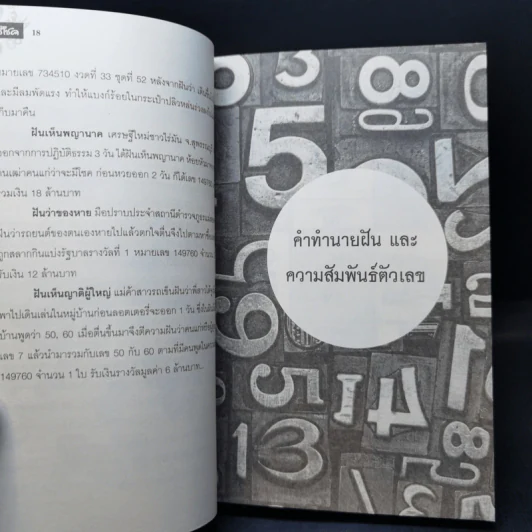 18
หมายเลข 734510 งวดที่ 33 ชุดที่ 52 หลังจากฝันว่า
และมีลมพัดแรง ทำให้แบงก์ร้อยในกระเป๋าปลิวหล่น
กับมาคืน
ฝันเห็นพญานาค เศรษฐีใหม่ชาวไร่มัน จ.
ออกจากการปฏิบัติธรรม 3 วัน ได้ฝันเห็นพญานาค
คนเฒ่าคนแก่ว่าจะมีโชค ก่อนหวยออก 2 วัน ก็ได้เลข
รวมเงิน 18 ล้านบาท
ฝันว่าของหาย มือปราบประจำสถานีตำรวจภูธร
ฝันว่ารถยนต์ของตนเองหายไปแล้วตกใจตื่นจึงไปตามหา
ถูกสลากกินแบ่งรัฐบาลรางวัลที่ 1 หมายเลข 149760
รับเงิน 12 ล้านบาท
ฝันเห็นญาติผู้ใหญ่ แม่ค้าสาวรถเข็นฝันว่าพี่สาว
พาไปเดินเล่นในหมู่บ้านก่อนลอตเตอรี่จะออก 1 วัน
บ้านพูดว่า 50, 60 เมื่อตื่นขึ้นมาจึงตีความฝันว่าคนแก่
เลข 7 แล้วนำมารวมกับเลข 50 กับ 60 ตามที่มีคนพูดใน
149760 จำนวน 1 ใบ รับเงินรางวัลมูลค่า 6 ล้านบาท..
คำทำนายฝัน และ
ความสัมพันธ์ตัวเลข